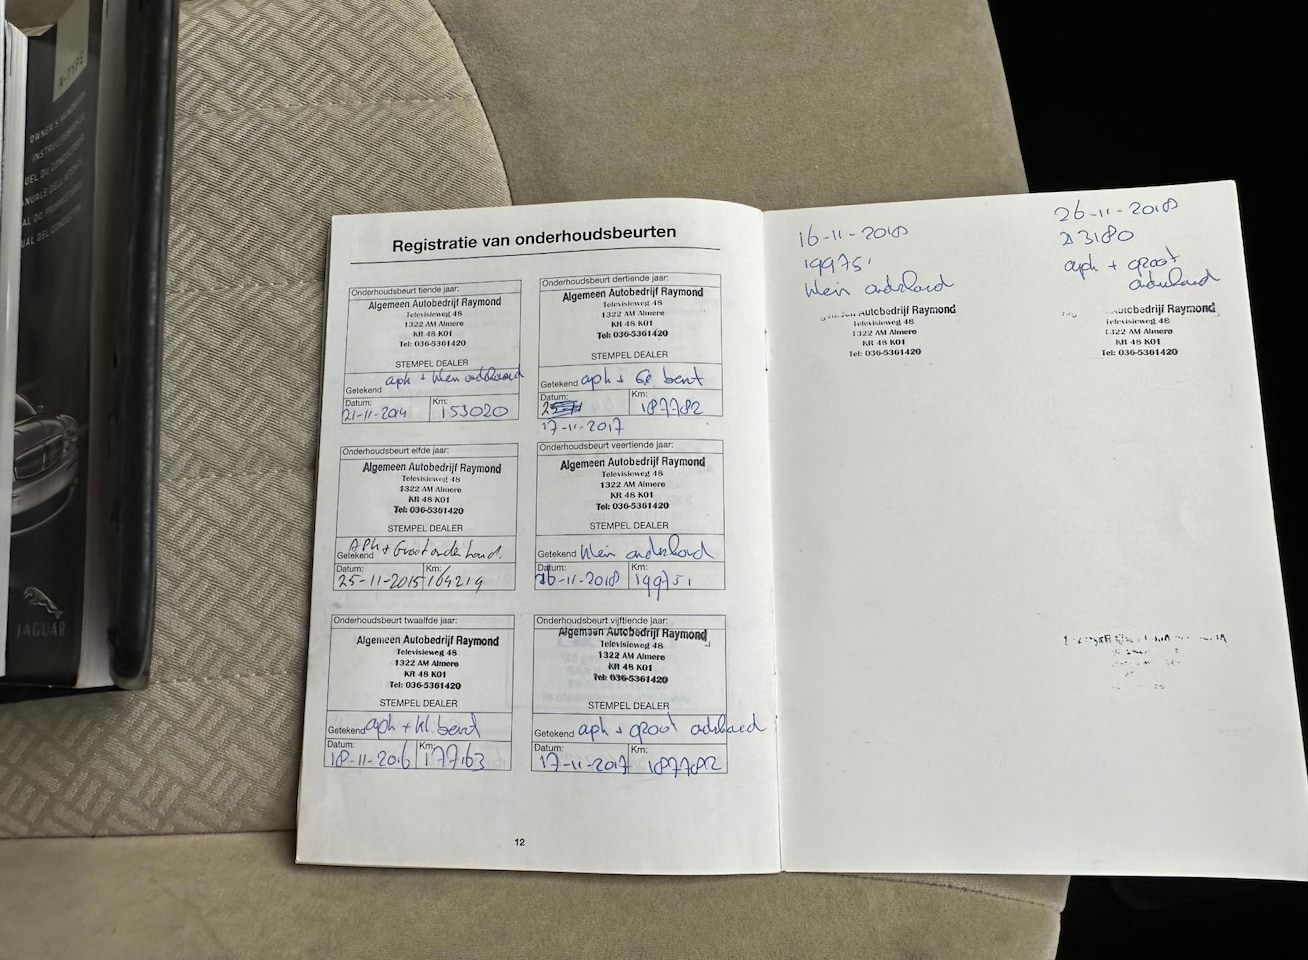 X-TYPE
OWNER'S HANDBOOK
JAGUAR
Registratie van onderhoudsbeurten
Onderhoudsbeurt tiende jaar:
Algemeen Autobedrijf Raymond
Televisieweg 48
1322 AM Almere
KR 48 K01
Tel: 036-5361420
STEMPEL DEALER
Getekend aph + klein onderhoud
Datum: Km:
21-11-2014 153020
Onderhoudsbeurt elfde jaar:
Algemeen Autobedrijf Raymond
Televisieweg 48
1322 AM Almere
KR 48 K01
Tel: 036-5361420
STEMPEL DEALER
Getekend APK + Groot onderhoud.
Datum: Km:
25-11-2015 164219
Onderhoudsbeurt twaalfde jaar:
Algemeen Autobedrijf Raymond
Televisieweg 48
1322 AM Almere
KR 48 K01
Tel: 036-5361420
STEMPEL DEALER
Getekend aph + kl. beurt
Datum: Km:
18-11-2016 177163
Onderhoudsbeurt dertiende jaar:
Algemeen Autobedrijf Raymond
Televisieweg 48
1322 AM Almere
KR 48 K01
Tel: 036-5361420
STEMPEL DEALER
Getekend aph + Gr. beurt
Datum: Km:
187782
17-11-2017
Onderhoudsbeurt veertiende jaar:
Algemeen Autobedrijf Raymond
Televisieweg 48
1322 AM Almere
KR 48 K01
Tel: 036-5361420
STEMPEL DEALER
Getekend klein onderhoud
Datum: Km:
16-11-2018 199751
Onderhoudsbeurt vijftiende jaar:
Algemeen Autobedrijf Raymond
Televisieweg 48
1322 AM Almere
KR 48 K01
Tel: 036-5361420
STEMPEL DEALER
Getekend aph + groot onderhoud
Datum: Km:
17-11-2017 187782
12
16-11-2018
199751
klein onderhoud
Autobedrijf Raymond
Televisieweg 48
1322 AM Almere
KR 48 K01
Tel: 036-5361420
26-11-2018
213180
aph + groot
onderhoud
Autobedrijf Raymond
Televisieweg 48
1322 AM Almere
KR 48 K01
Tel: 036-5361420